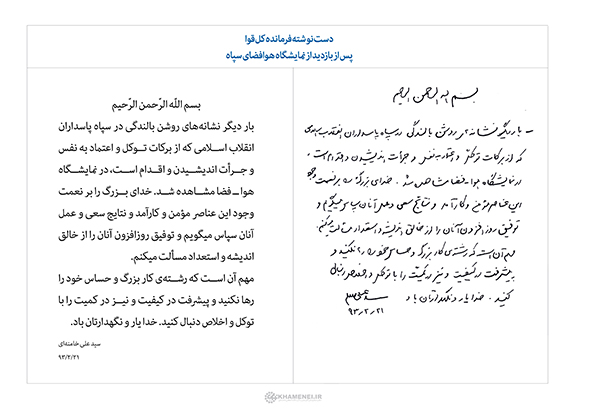 دست‌نوشته فرمانده کل قوا
پس از بازدید از نمایشگاه هوافضای سپاه
بسم الله الرحمن الرحیم
- بار دیگر نشانه‌های روشن بالندگی در سپاه پاسداران انقلاب اسلامی
که از برکات توکل و اعتماد به نفس و جرأت اندیشیدن و اقدام است،
در نمایشگاه هوا ـ فضا مشاهده شد. خدای بزرگ را بر نعمت وجود
این عناصر مؤمن و کارآمد و نتایج سعی و عمل آنان سپاس میگویم و
توفیق روزافزون آنان را از خالق اندیشه و استعداد مسألت میکنم.
مهم آن است که رشته‌ی کار بزرگ و حساس خود را رها نکنید و
پیشرفت در کیفیت و نیز در کمیت را با توکل و اخلاص دنبال
کنید. خدا یار و نگهدارتان باد.
۹۳/۲/۲۱
بسم اللّه الرّحمن الرّحیم
بار دیگر نشانه‌های روشن بالندگی در سپاه پاسداران
انقلاب اسلامی که از برکات توکل و اعتماد به نفس
و جرأت اندیشیدن و اقدام است، در نمایشگاه
هوا ـ فضا مشاهده شد. خدای بزرگ را بر نعمت
وجود این عناصر مؤمن و کارآمد و نتایج سعی و عمل
آنان سپاس میگویم و توفیق روزافزون آنان را از خالق
اندیشه و استعداد مسألت میکنم.
مهم آن است که رشته‌ی کار بزرگ و حساس خود را
رها نکنید و پیشرفت در کیفیت و نیـز در کمیت را با
توکل و اخلاص دنبال کنید. خدا یار و نگهدارتان باد.
سید علی خامنه‌ای
۹۳/۲/۲۱
KHAMENEI.IR